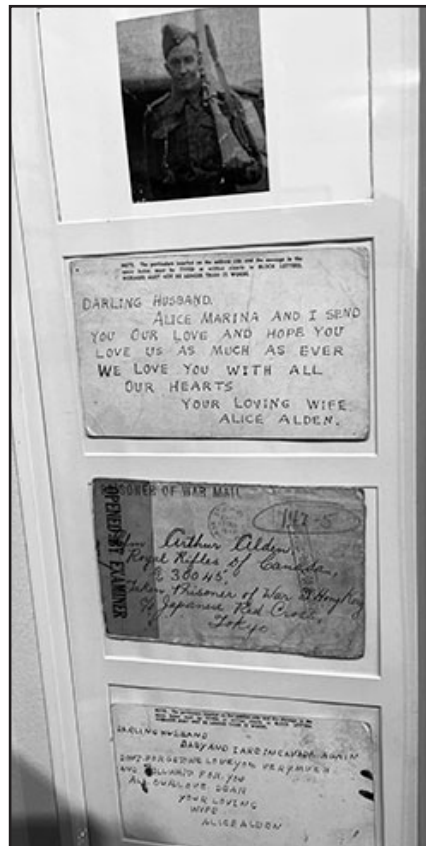 NOTE. The particulars inserted on the address side and the message in the
DARLING HUSBAND.
ALICE MARINA AND I SEND
YOU OUR LOVE AND HOPE YOU
LOVE US AS MUCH AS EVER
WE LOVE YOU WITH ALL
OUR HEARTS
YOUR LOVING WIFE
ALICE ALDEN.
PRISONER OF WAR MAIL
OPENED BY EXAMINER
Arthur Alden,
Royal Rifles of Canada,
E 30045
Taken Prisoner of War at Hong Kong
Japanese Red Cross,
Tokyo
DARLING HUSBAND
BABY AND I ARE IN CANADA AGAIN
DON'T FORGET WE LOVE YOU VERY MUCH
AND FOR YOU
ALL OUR LOVE DEAR
YOUR LOVING
WIFE
ALICE ALDEN